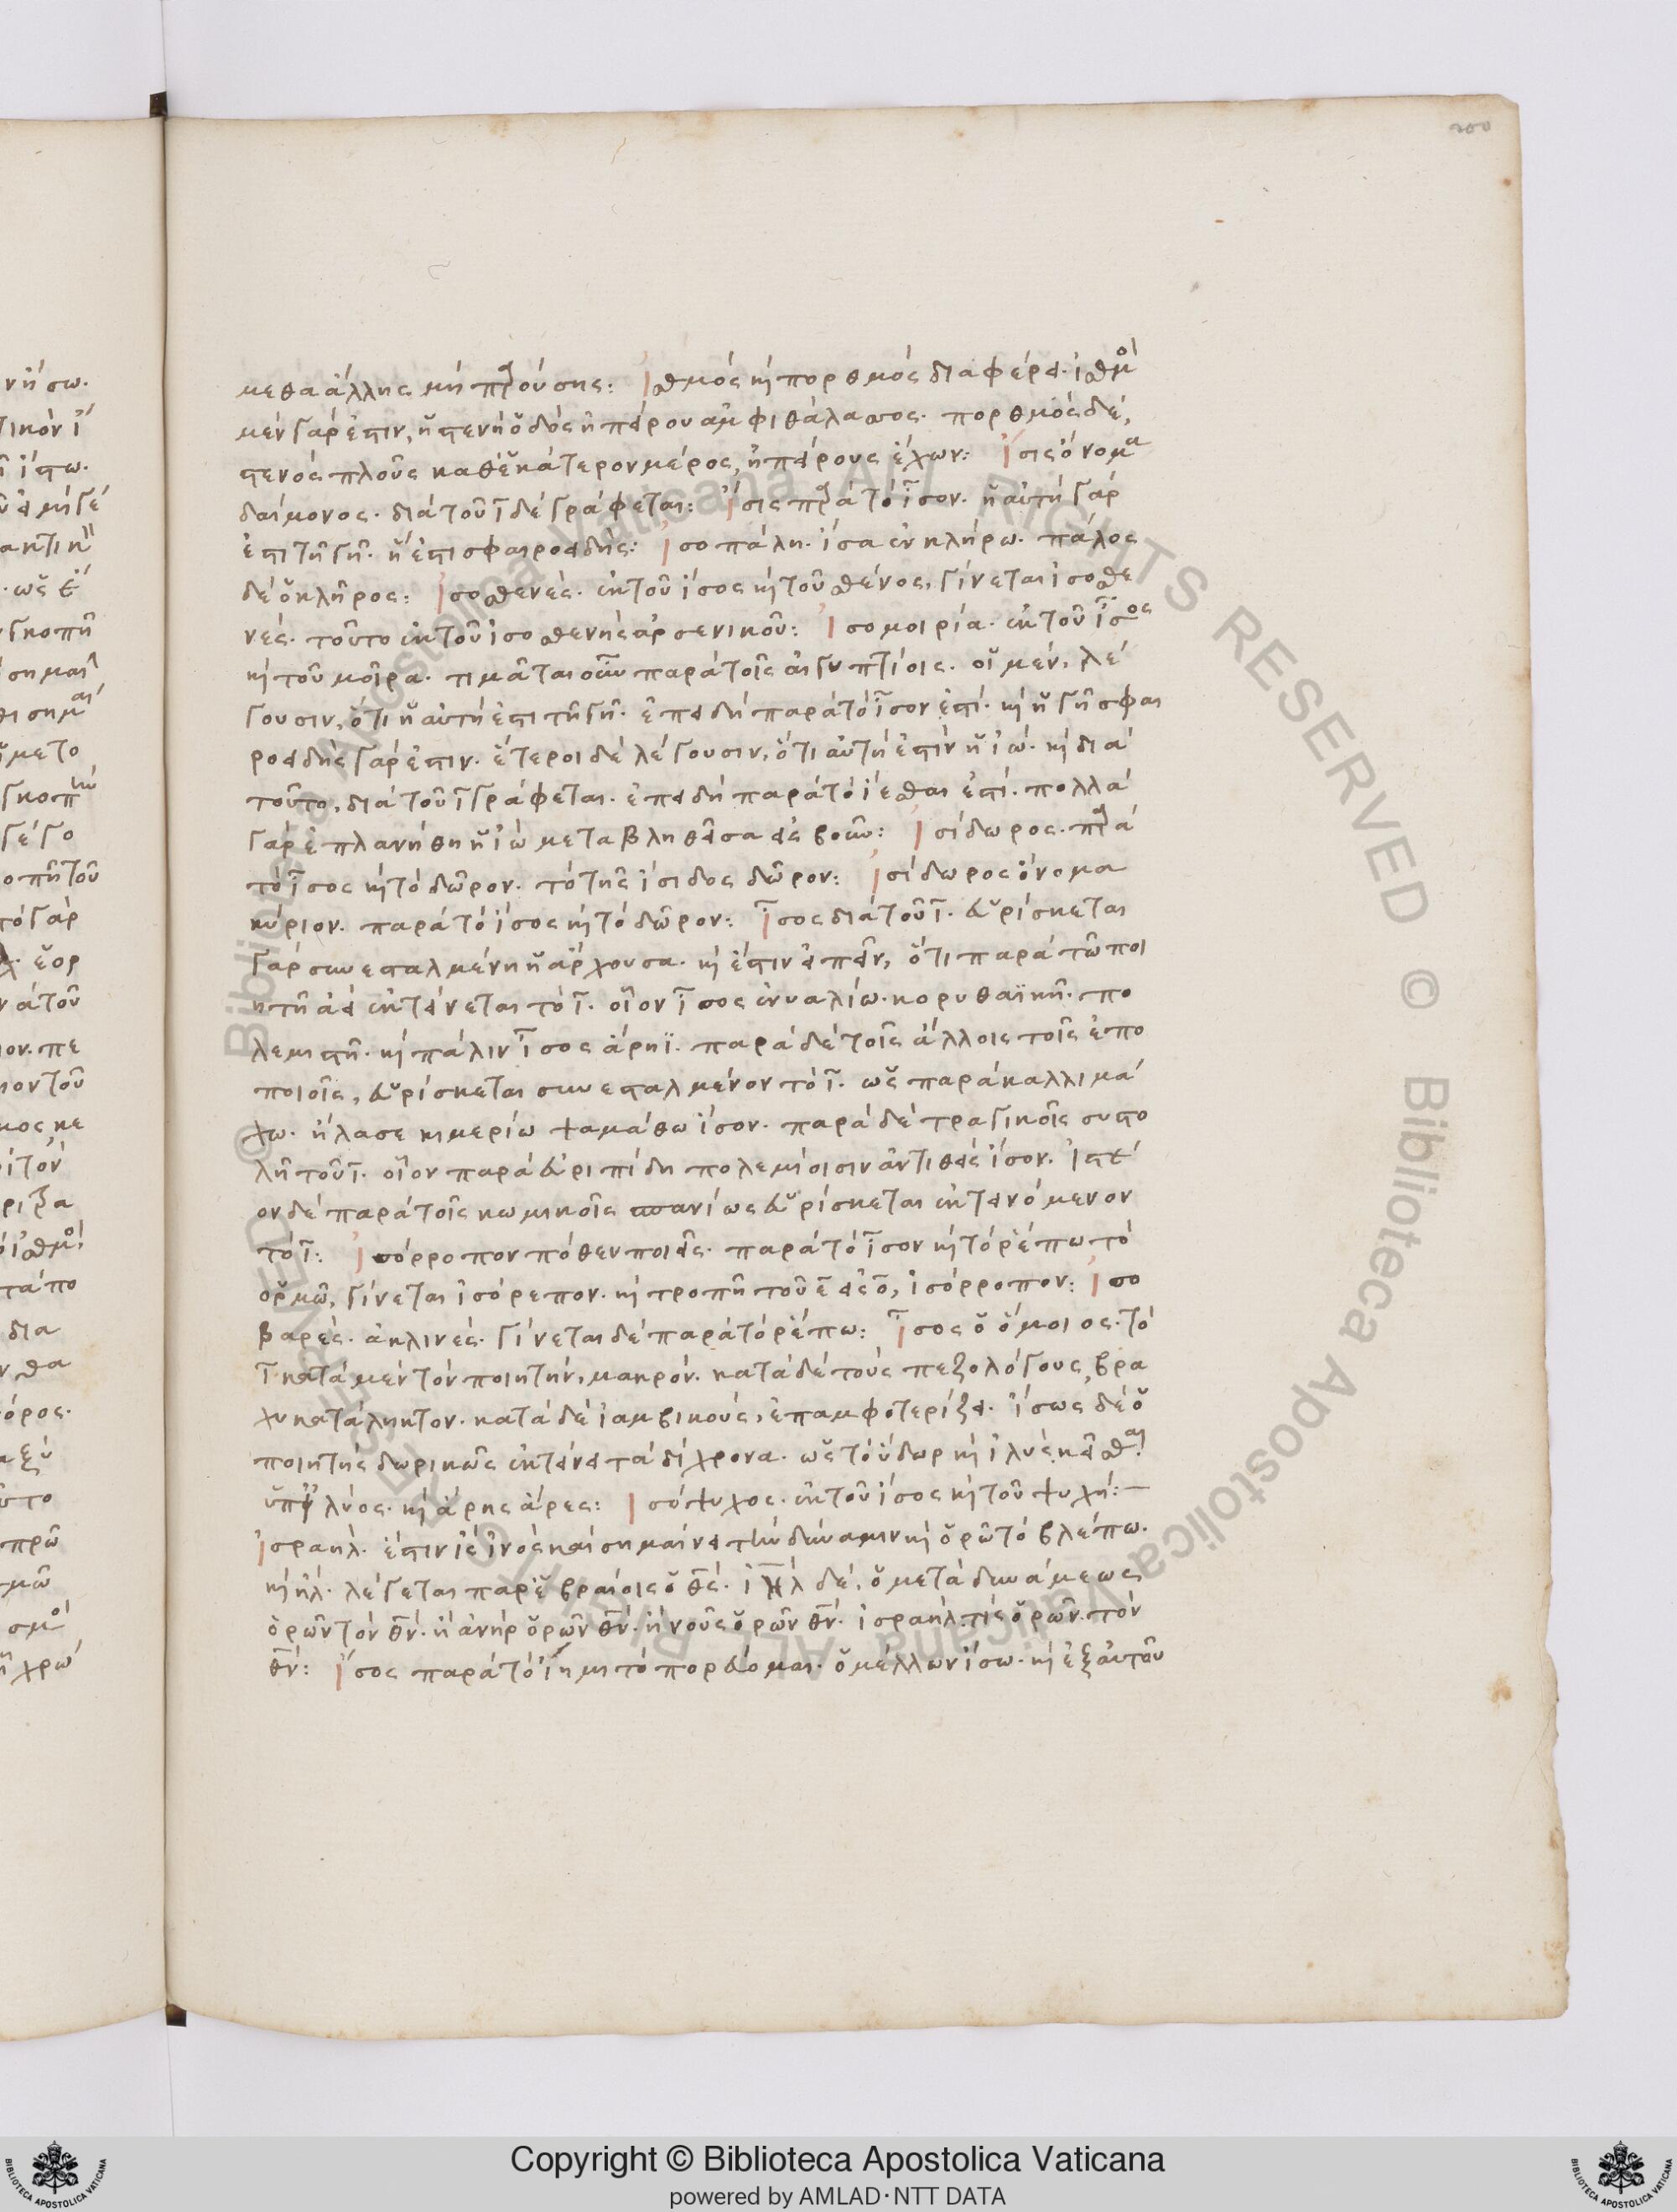 200
μεθα ἄλλης μὴ προύσης: Ἰσθμὸς κ πορθμὸς διαφέρει. ἰσθμὸ
μὲν γάρ ἐστιν, ἡ στενὴ ὁδὸς ἠπείρου ἀμφιθάλασσος. πορθμὸς δὲ,
στενὸς πλοῦς καθ' ἑκάτερον μέρος, ἠπείρους ἔχων: Ἶσις ὄνομα
δαίμονος. διὰ τοῦ ῑ δὲ γράφεται: Ἶσις πρὰ τὸ ῖσον. ἡ αὐτὴ γάρ
ἐστι τῆ γῆ. ἥ ἐστι σφαιροειδής: Ἰσοπάλη. ἴσα ἐν κλήρω. πάλος
δὲ ὁ κλῆρος: Ἰσοσθενές. ἐκ τοῦ ἴσος κ τοῦ σθένος, γίνεται ἰσοσθε
νές. τοῦτο ἐκ τοῦ ἰσοσθενὴς ἀρσενικοῦ: Ἰσομοιρία. ἐκ τοῦ ῖσος
κ τοῦ μοῖρα. τιμᾶται οὖν παρὰ τοῖς αἰγυπτίοις. οἱ μέν, λέ
γουσιν, ὅτι ἡ αὐτή ἐστι τῆ γῆ. ἐπειδὴ παρὰ τὸ ῖσον ἐστί. κ ἡ γῆ σφαι
ροειδής γάρ ἐστιν. ἕτεροι δὲ λέγουσιν, ὅτι αὐτή ἐστιν ἡ ἰώ. κ διὰ
τοῦτο, διὰ τοῦ ῑ γράφεται. ἐπειδὴ παρὰ τὸ ἵεσθαι ἐστί. πολλὰ
γὰρ ἐπλανήθη ἡ ἰὼ μεταβληθεῖσα εἰς βοῦν: Ἰσίδωρος. πρὰ
τὸ ῖσος κ τὸ δῶρον. τὸ τῆς ἴσιδος δῶρον: Ἰσίδωρος ὄνομα
κύριον. παρὰ τὸ ἴσος κ τὸ δῶρον: Ῑσος διὰ τοῦ ῑ. εὑρίσκεται
γὰρ συνεσταλμένη ἡ ἄρχουσα. κ ἔστιν εἰπεῖν, ὅτι παρὰ τῶ ποι
ητῆ ἀεὶ ἐκτείνεται τὸ ῑ. οἷον ῖσος ἐνυαλίω. κορυθαϊκῆ. πο
λεμιστῆ. κ πάλιν ῖσος ἄρηϊ. παρὰ δὲ τοῖς ἄλλοις τοῖς ἐπο
ποιοῖς, εὑρίσκεται συνεσταλμένον τὸ ῑ. ὡς παρὰ καλλιμά
χω. ἤλασε κιμερίω ψαμάθω ἴσον. παρὰ δὲ τραγικοῖς συστο
λῆ τοῦ ῑ. οἷον παρὰ εὐριπίδη πολεμίοισιν ἀντιθεὶς ἴσον. Ἰστέ
ον δὲ παρὰ τοῖς κωμικοῖς σπανίως εὑρίσκεται ἐκτεινόμενον
τὸ ῑ: Ἰσόρροπον πόθεν ποιεῖς. παρὰ τὸ ῖσον κ τὸ ῥέπω τὸ
ὁρμῶ, γίνεται ἰσόρεπον. κ τροπῆ τοῦ ε̄ εἰς ο̄, ἰσόρροπον: Ἰσο
βαρές. ἀκλινές. γίνεται δὲ παρὰ τὸ ῥέπω: Ῑσος ὁ ὅμοιος. τὸ
ῑ κατὰ μὲν τὸν ποιητήν, μακρόν. κατὰ δὲ τοὺς πεζολόγους, βρα
χυκατάληκτον. κατὰ δὲ ἰαμβικούς, ἐπαμφοτερίζει. ἴσως δὲ ὁ
ποιητὴς δωρικῶς ἐκτείνει τὰ δίχρονα. ὡς τὸ ὕδωρ κ ἰλὺς κεῖσθαι
ὑπ' ἰλύος. κ ἄρης ἄρες: Ἰσόψυχος. ἐκ τοῦ ἴσος κ τοῦ ψυχή:—
Ἰσραηλ. ἔστιν ἲς ἰνὸς καὶ σημαίνει τὴν δύναμιν κ ὁρῶ τὸ βλέπω.
κ ἠλ. λέγεται παρ' ἑβραίοις ὁ θς. ἰηλ δὲ, ὁ μετὰ δυνάμεως
ὁρῶν τὸν θν. ἢ ἀνὴρ ὁρῶν θν. ἢ νοῦς ὁρῶν θν. ἰσραήλ τις ὁρῶν τὸν
θν: Ἴσος παρὰ τὸ ἵημι τὸ πορεύομαι. ὁ μέλλων ἴσω. κ ἐξ αὐτοῦ
Copyright © Biblioteca Apostolica Vaticana
powered by AMLAD·NTT DATA